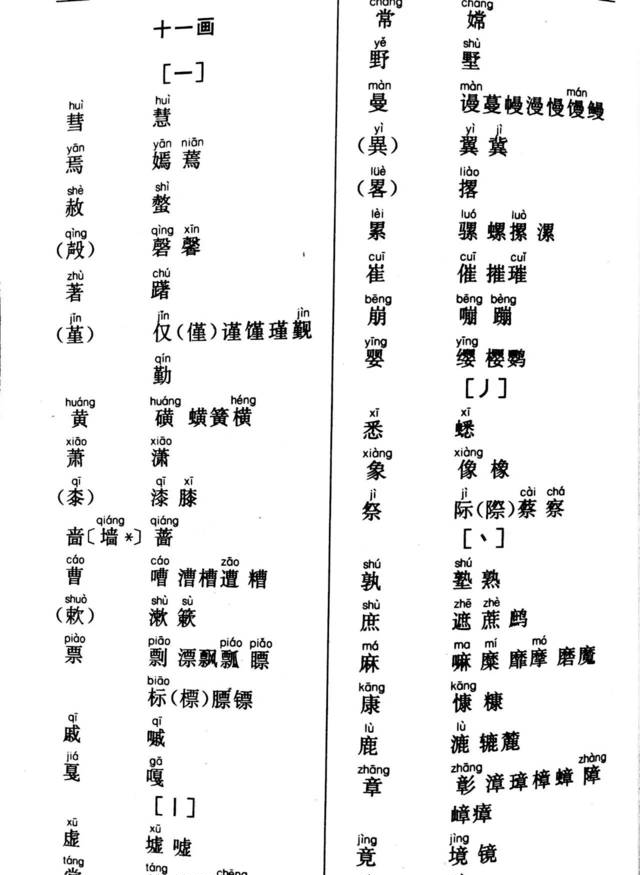 十一画
[一]
huì huì
彗 慧
yān yān niān
焉 嫣 蔫
shè shì
赦 螫
qìng qìng xīn
(殸) 磬 馨
zhù chú
著 躇
jǐn jǐn jìn
(堇) 仅(僅)谨馑瑾觐
qín
勤
huáng huáng héng
黄 磺 蟥簧横
xiāo xiāo
萧 潇
qī qī xī
(桼) 漆 膝
qiáng qiáng
啬〔墙*〕蔷
cáo cáo zāo
曹 嘈 漕槽遭 糟
shuò shù sù
(欶) 漱 簌
piào piāo piáo piǎo
票 剽 漂飘瓢 瞟
biāo
标(標)膘镖
qī qī
戚 嘁
jiá gā
戛 嘎
[丨]
xū xū
虚 墟 嘘
táng táng chēng
cháng cháng
常 嫦
yě shù
野 墅
màn màn mán
曼 谩蔓幔漫慢馒鳗
yì yì jì
(異) 翼 冀
lüè liào
(畧) 撂
lèi luó luò
累 骡 螺摞 漯
cuī cuī cuǐ
崔 催 摧璀
bēng bēng bèng
崩 嘣 蹦
yīng yīng
婴 缨 樱鹦
[丿]
xī xī
悉 蟋
xiàng xiàng
象 像 橡
jì jì cài chá
祭 际(際)蔡 察
[丶]
shú shú
孰 塾 熟
shù zhē zhè
庶 遮 蔗 鹧
má ma mí mó
麻 嘛 糜 靡摩 磨魔
kāng kāng
康 慷 糠
lù lù
鹿 漉 辘麓
zhāng zhāng zhàng
章 彰 漳璋樟蟑 障
嶂瘴
jìng jìng
竟 境 镜